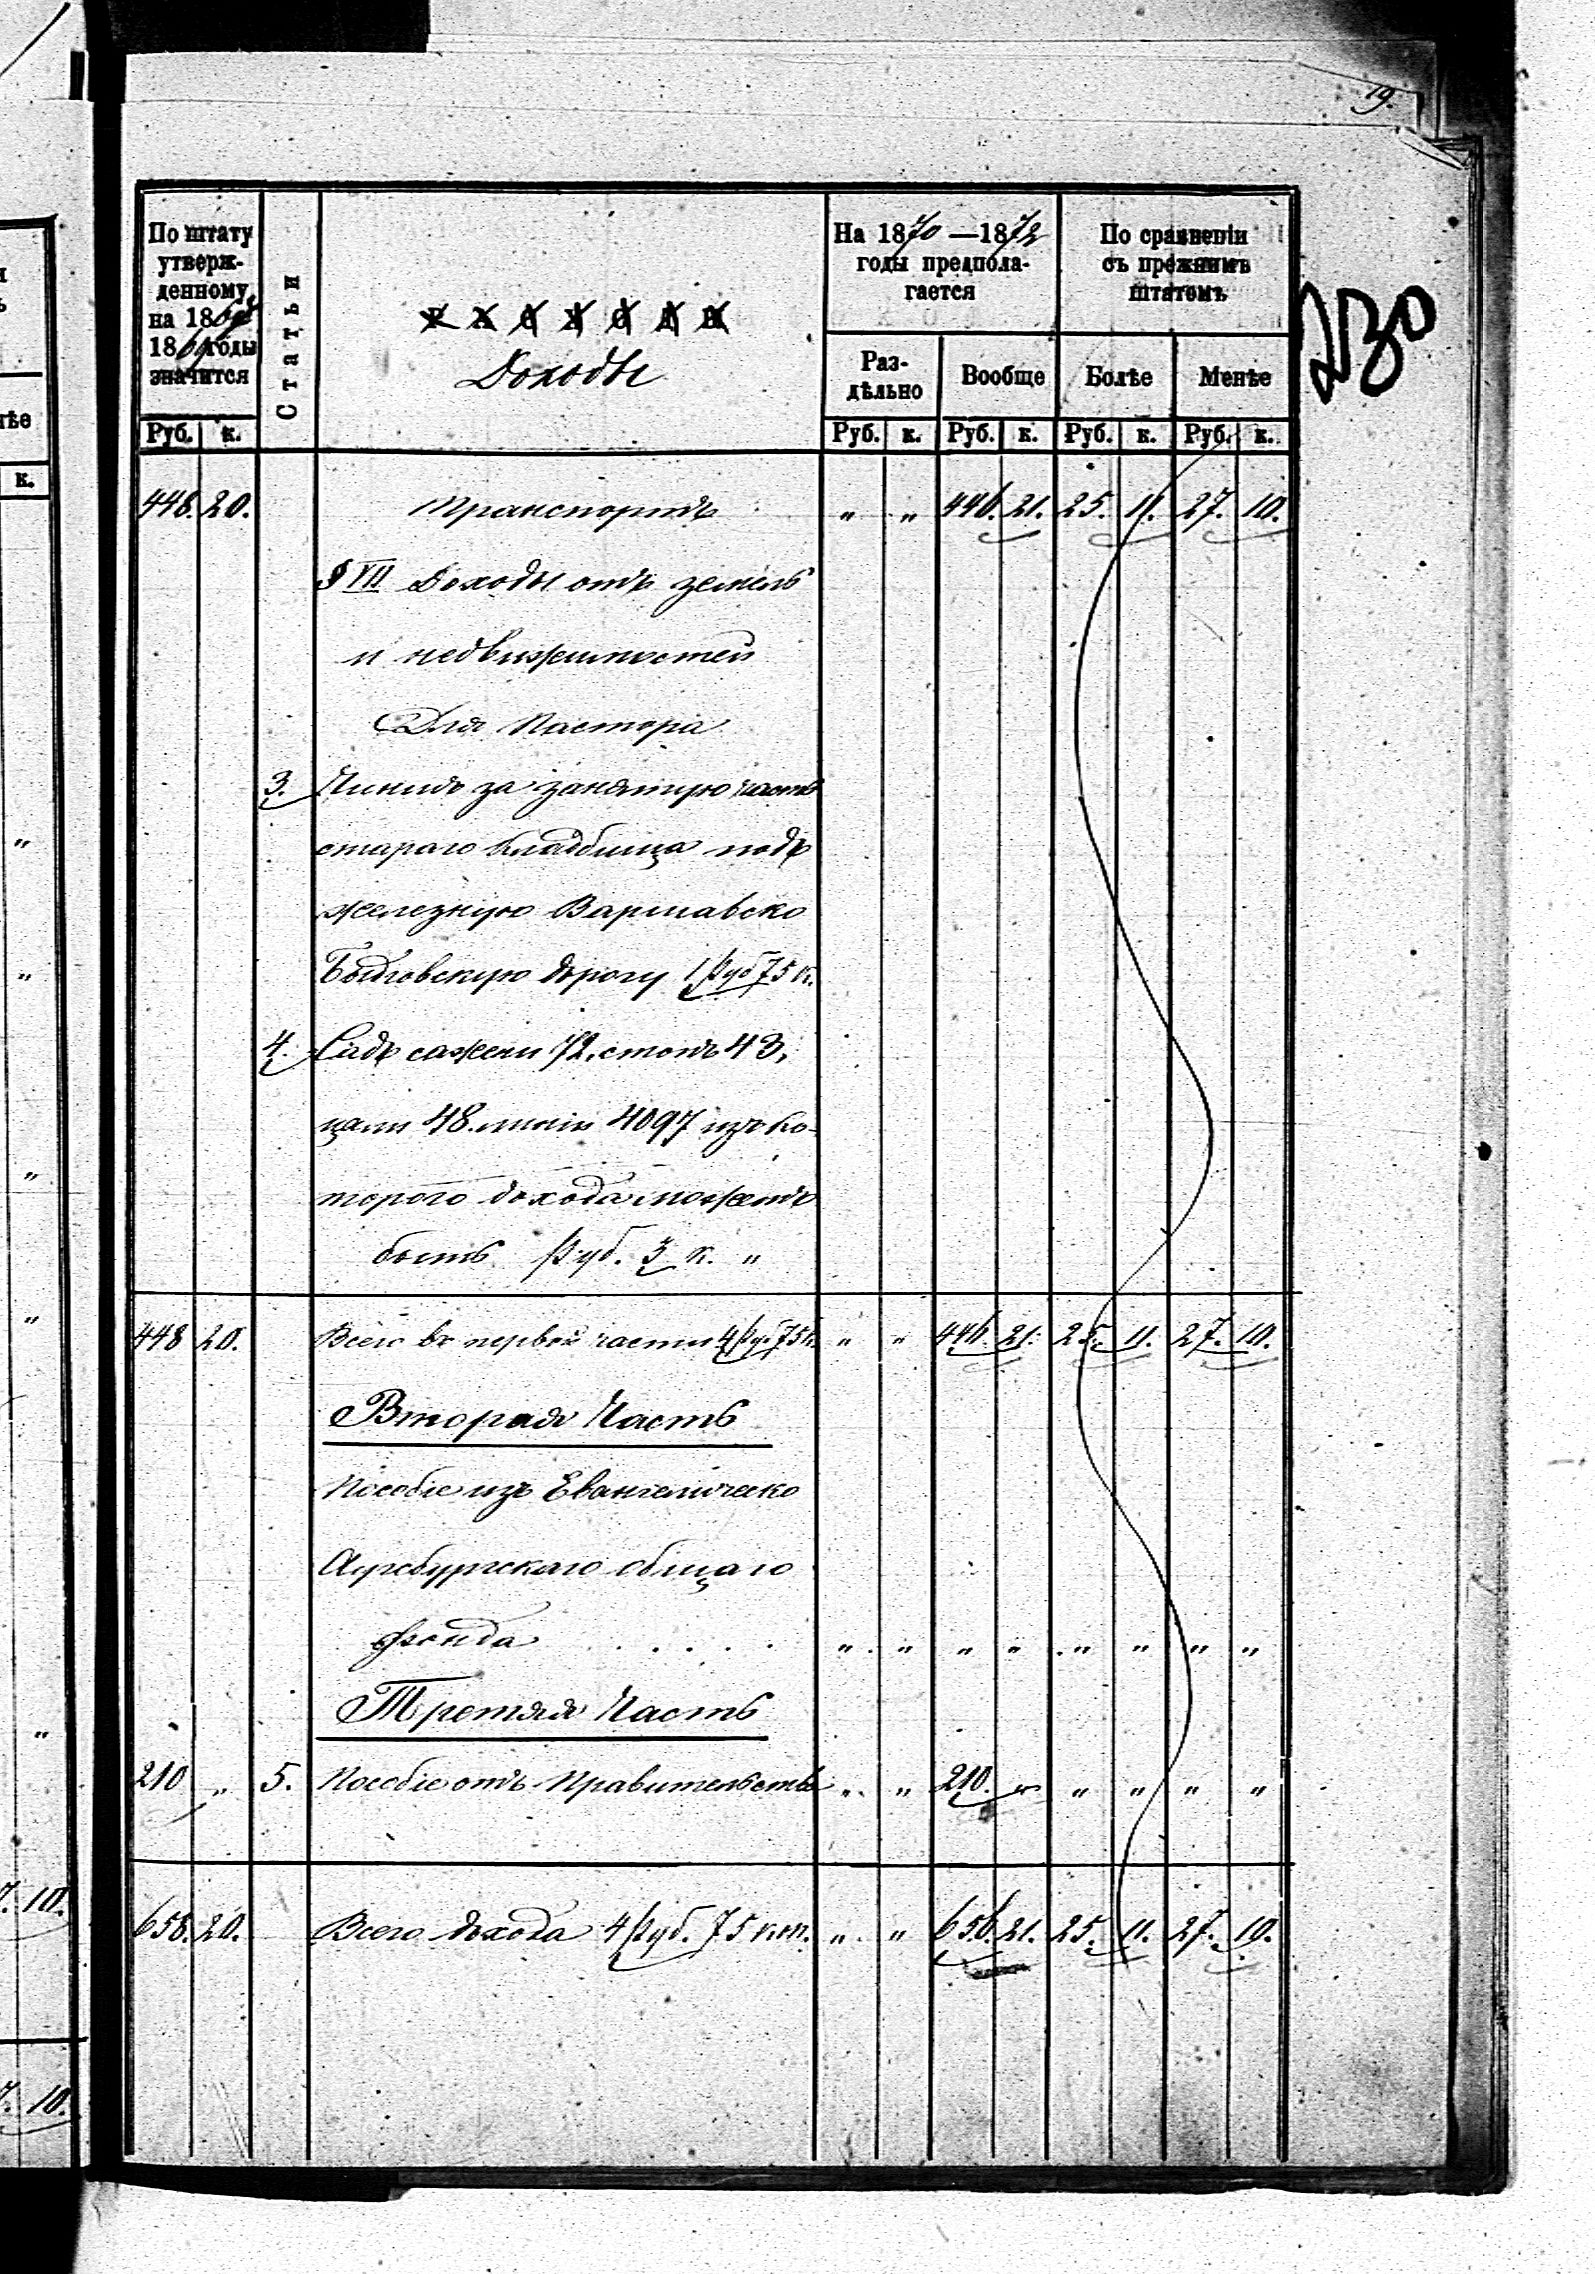 19.
230
По штату утверж-
денному
на 1868
1869 годы
значится
Статьи
РАСХОДЫ
Доходы
На 1870—1872
годы предпола-
гается
По сравненіи
съ прежнимъ
штатомъ
Раз-
дѣльно
Вообще
Болѣе
Менѣе
Руб. к. Руб. к. Руб. к. Руб. к. Руб. к.
448. 20. Транспортъ " " 446. 21. 25. 11. 27. 10.
§ VII Доходы отъ земель
и недвижимостей
Для Пастора
3. Чиншъ за занятую часть
стараго кладбища подъ
железную Варшавско
Быдговскую дорогу 1 Руб 75 к.
4. Садъ сажени 72, стопъ 43,
цали 48. линіи 4097 изъ ко-
торого дохода можетъ
быть Руб. 3 к. "
448 20. Всего въ первой части 4 Руб 75 к. " " 446. 21. 25. 11. 27. 10.
Вторая Часть
Пособіе изъ Евангелическо
Аугсбургскаго общаго
фонда . . . . . " " " " " " " "
Третяя Часть
210 " 5. Пособіе отъ Правительства " " 210. " " " " "
658. 20. Всего дохода 4 Руб. 75 коп. " " 656. 21. 25. 11. 27. 10.
ѣе
к.
"
"
"
"
"
7. 10.
7. 10.